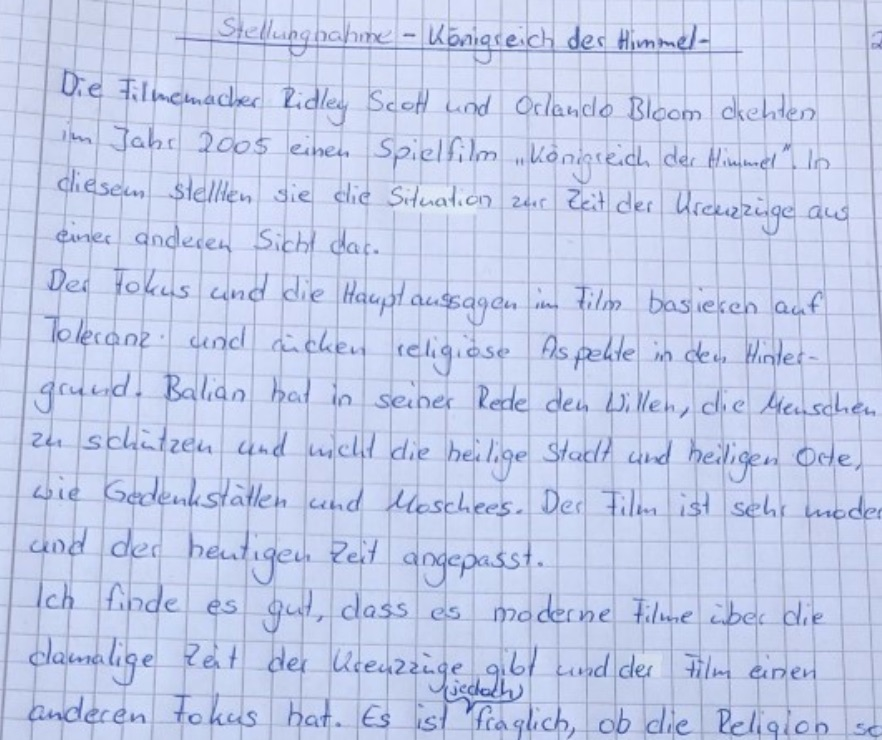 Stellungnahme - Königreich der Himmel-
Die Filmemacher Ridley Scott und Orlando Bloom drehten
im Jahr 2005 einen Spielfilm „Königreich der Himmel". In
diesem stellten sie die Situation zur Zeit der Kreuzzüge aus
einer anderen Sicht dar.
Der Fokus und die Hauptaussagen im Film basieren auf
Toleranz und rücken religiöse Aspekte in den Hinter-
grund. Balian hat in seiner Rede den Willen, die Menschen
zu schützen und nicht die heilige Stadt und heiligen Orte,
wie Gedenkstätten und Moschees. Der Film ist sehr moder
und der heutigen Zeit angepasst.
Ich finde es gut, dass es moderne Filme über die
damalige Zeit der Kreuzzüge gibt und der Film einen
(jedoch)
anderen Fokus hat. Es ist fraglich, ob die Religion so